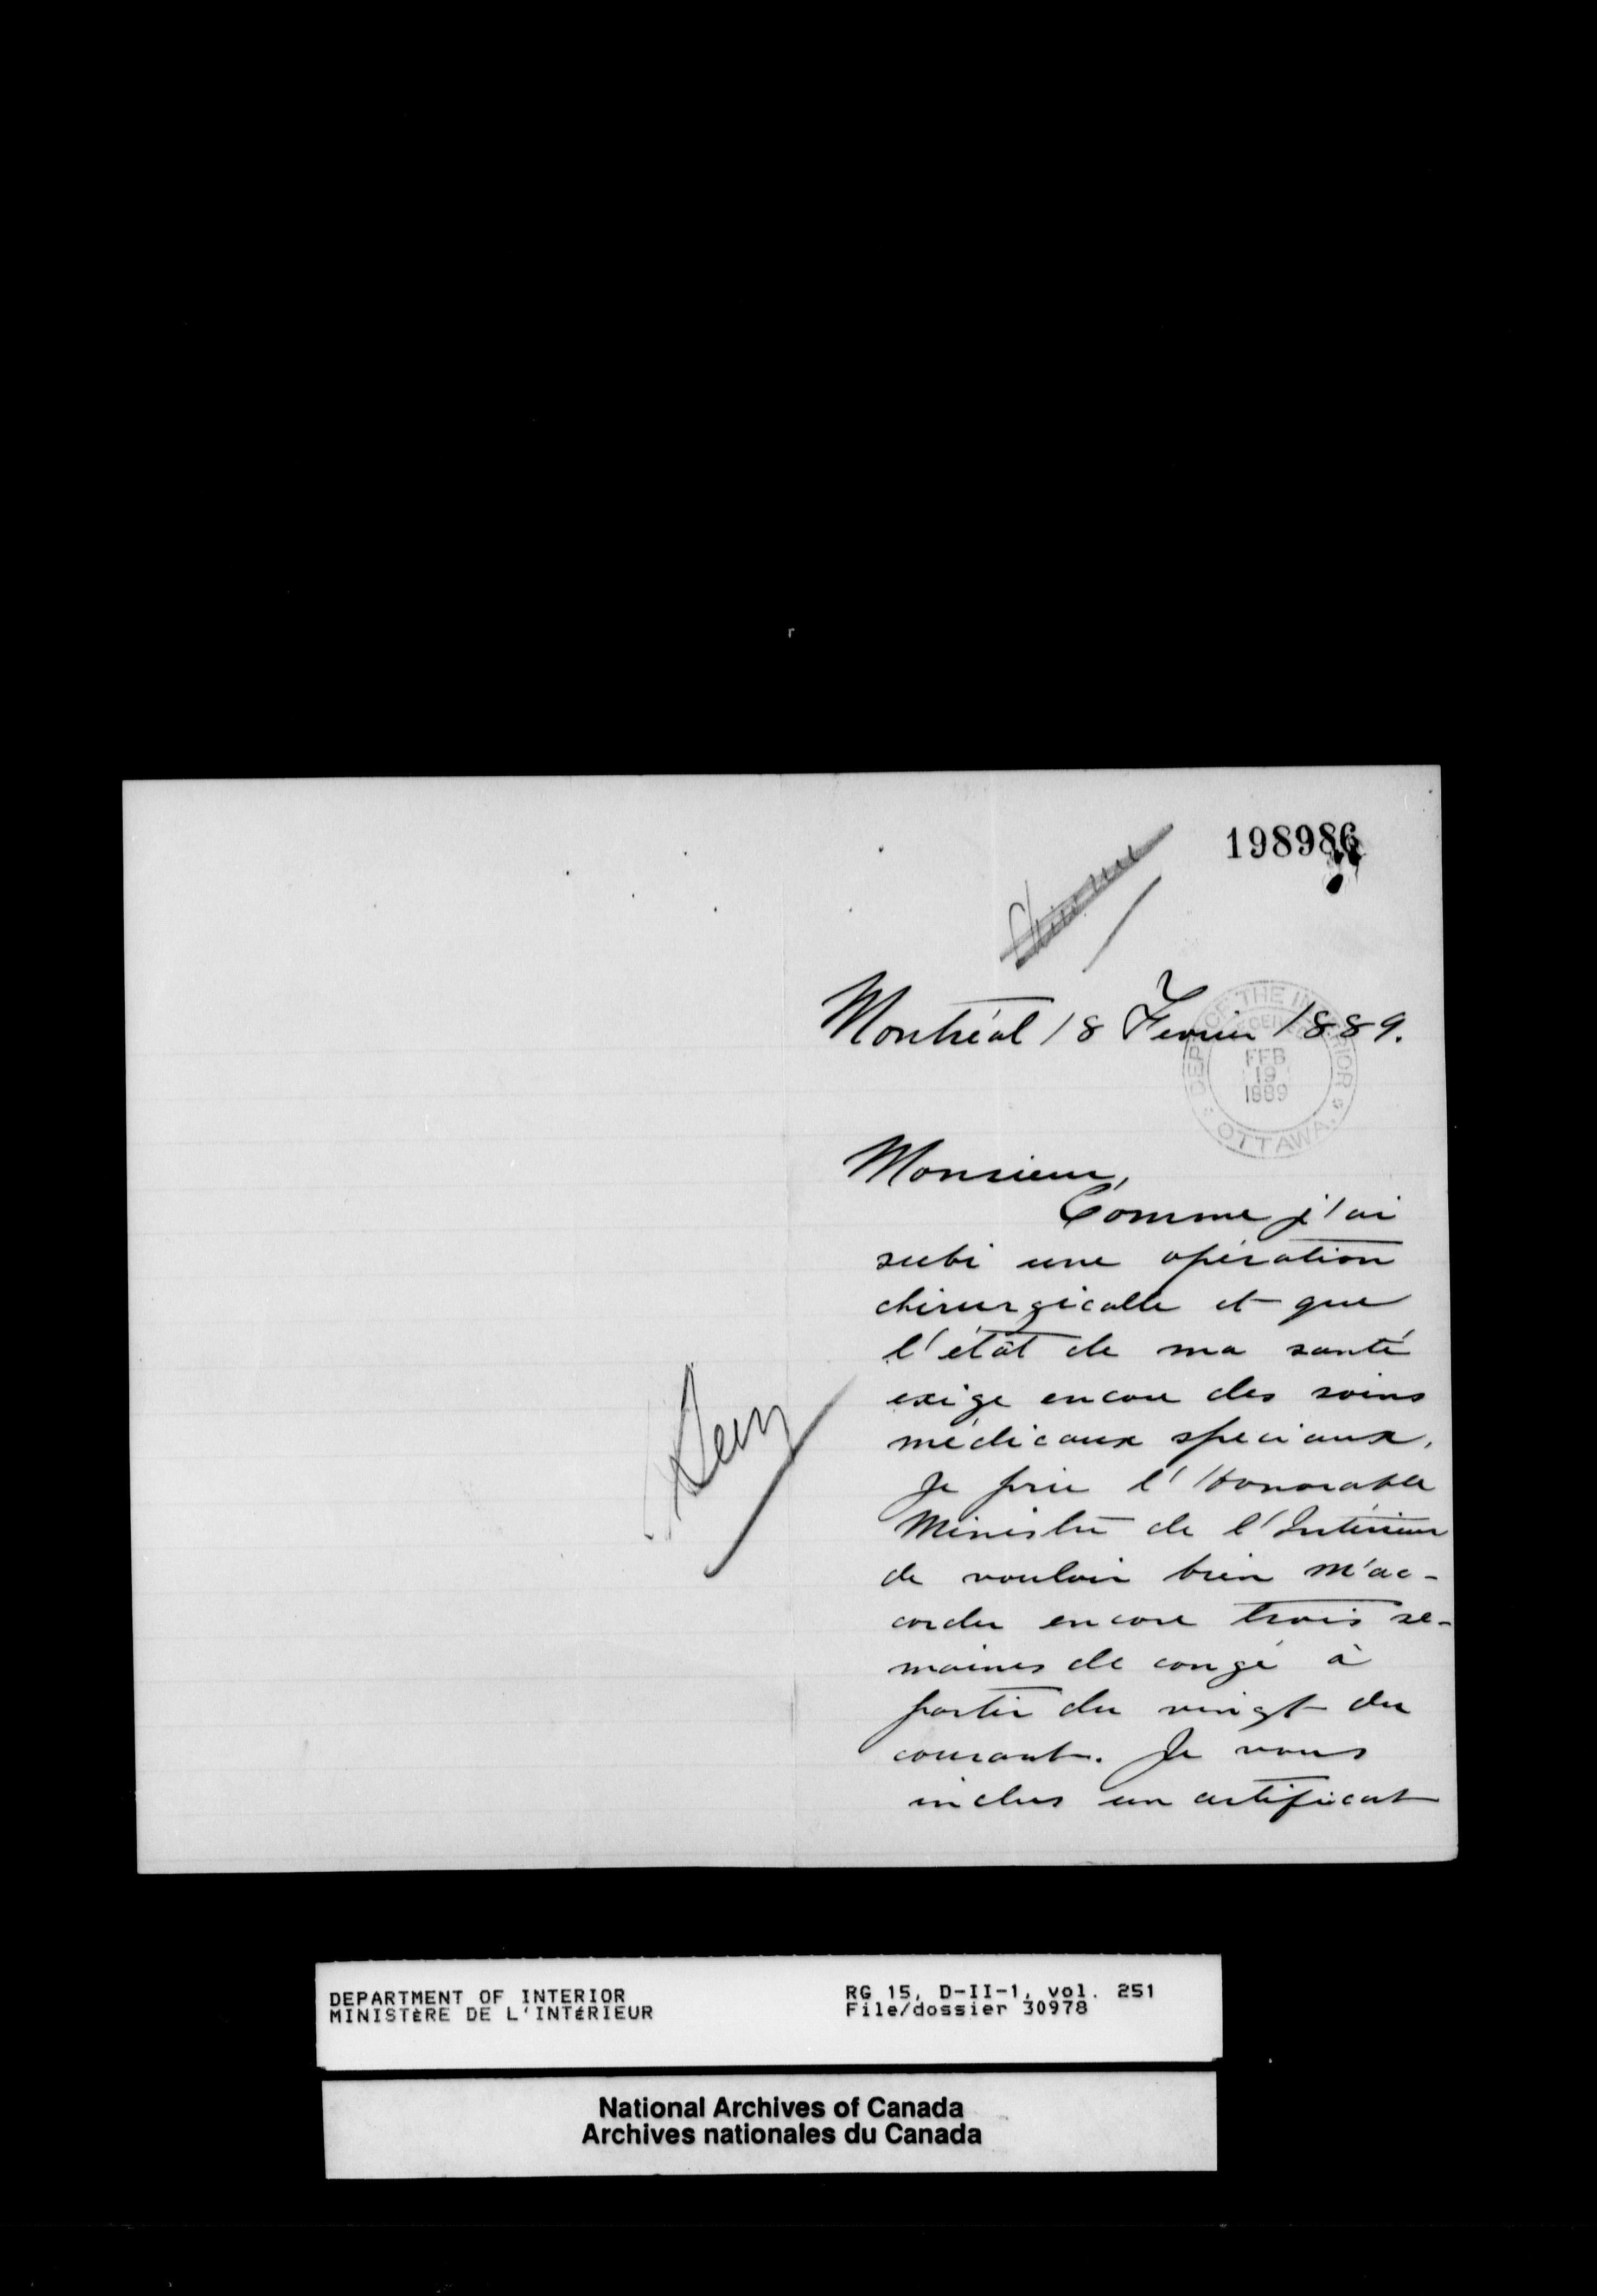 198986
Montréal 18 Fevrier 1889.
DEPT OF THE INTERIOR
RECEIVED
FEB
19
1889
OTTAWA.
Monsieur,
Comme j'ai
subi une opération
chirurgicalle et que
l'étât de ma santé
exige encore des soins
médicaux speciaux,
Je prie l'Honorable
Ministre de l'Intérieur
de vouloir bien m'ac-
corder encore trois se-
maines de congé à
partir du vingt du
courant. Je vous
inclus un certificat
DEPARTMENT OF INTERIOR
MINISTÈRE DE L'INTÉRIEUR
RG 15, D-II-1, vol. 251
File/dossier 30978
National Archives of Canada
Archives nationales du Canada